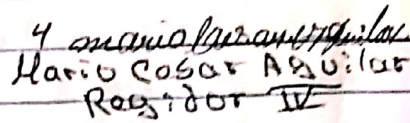 4 Mario
Mario Cosar Aguilar
Regidor IV